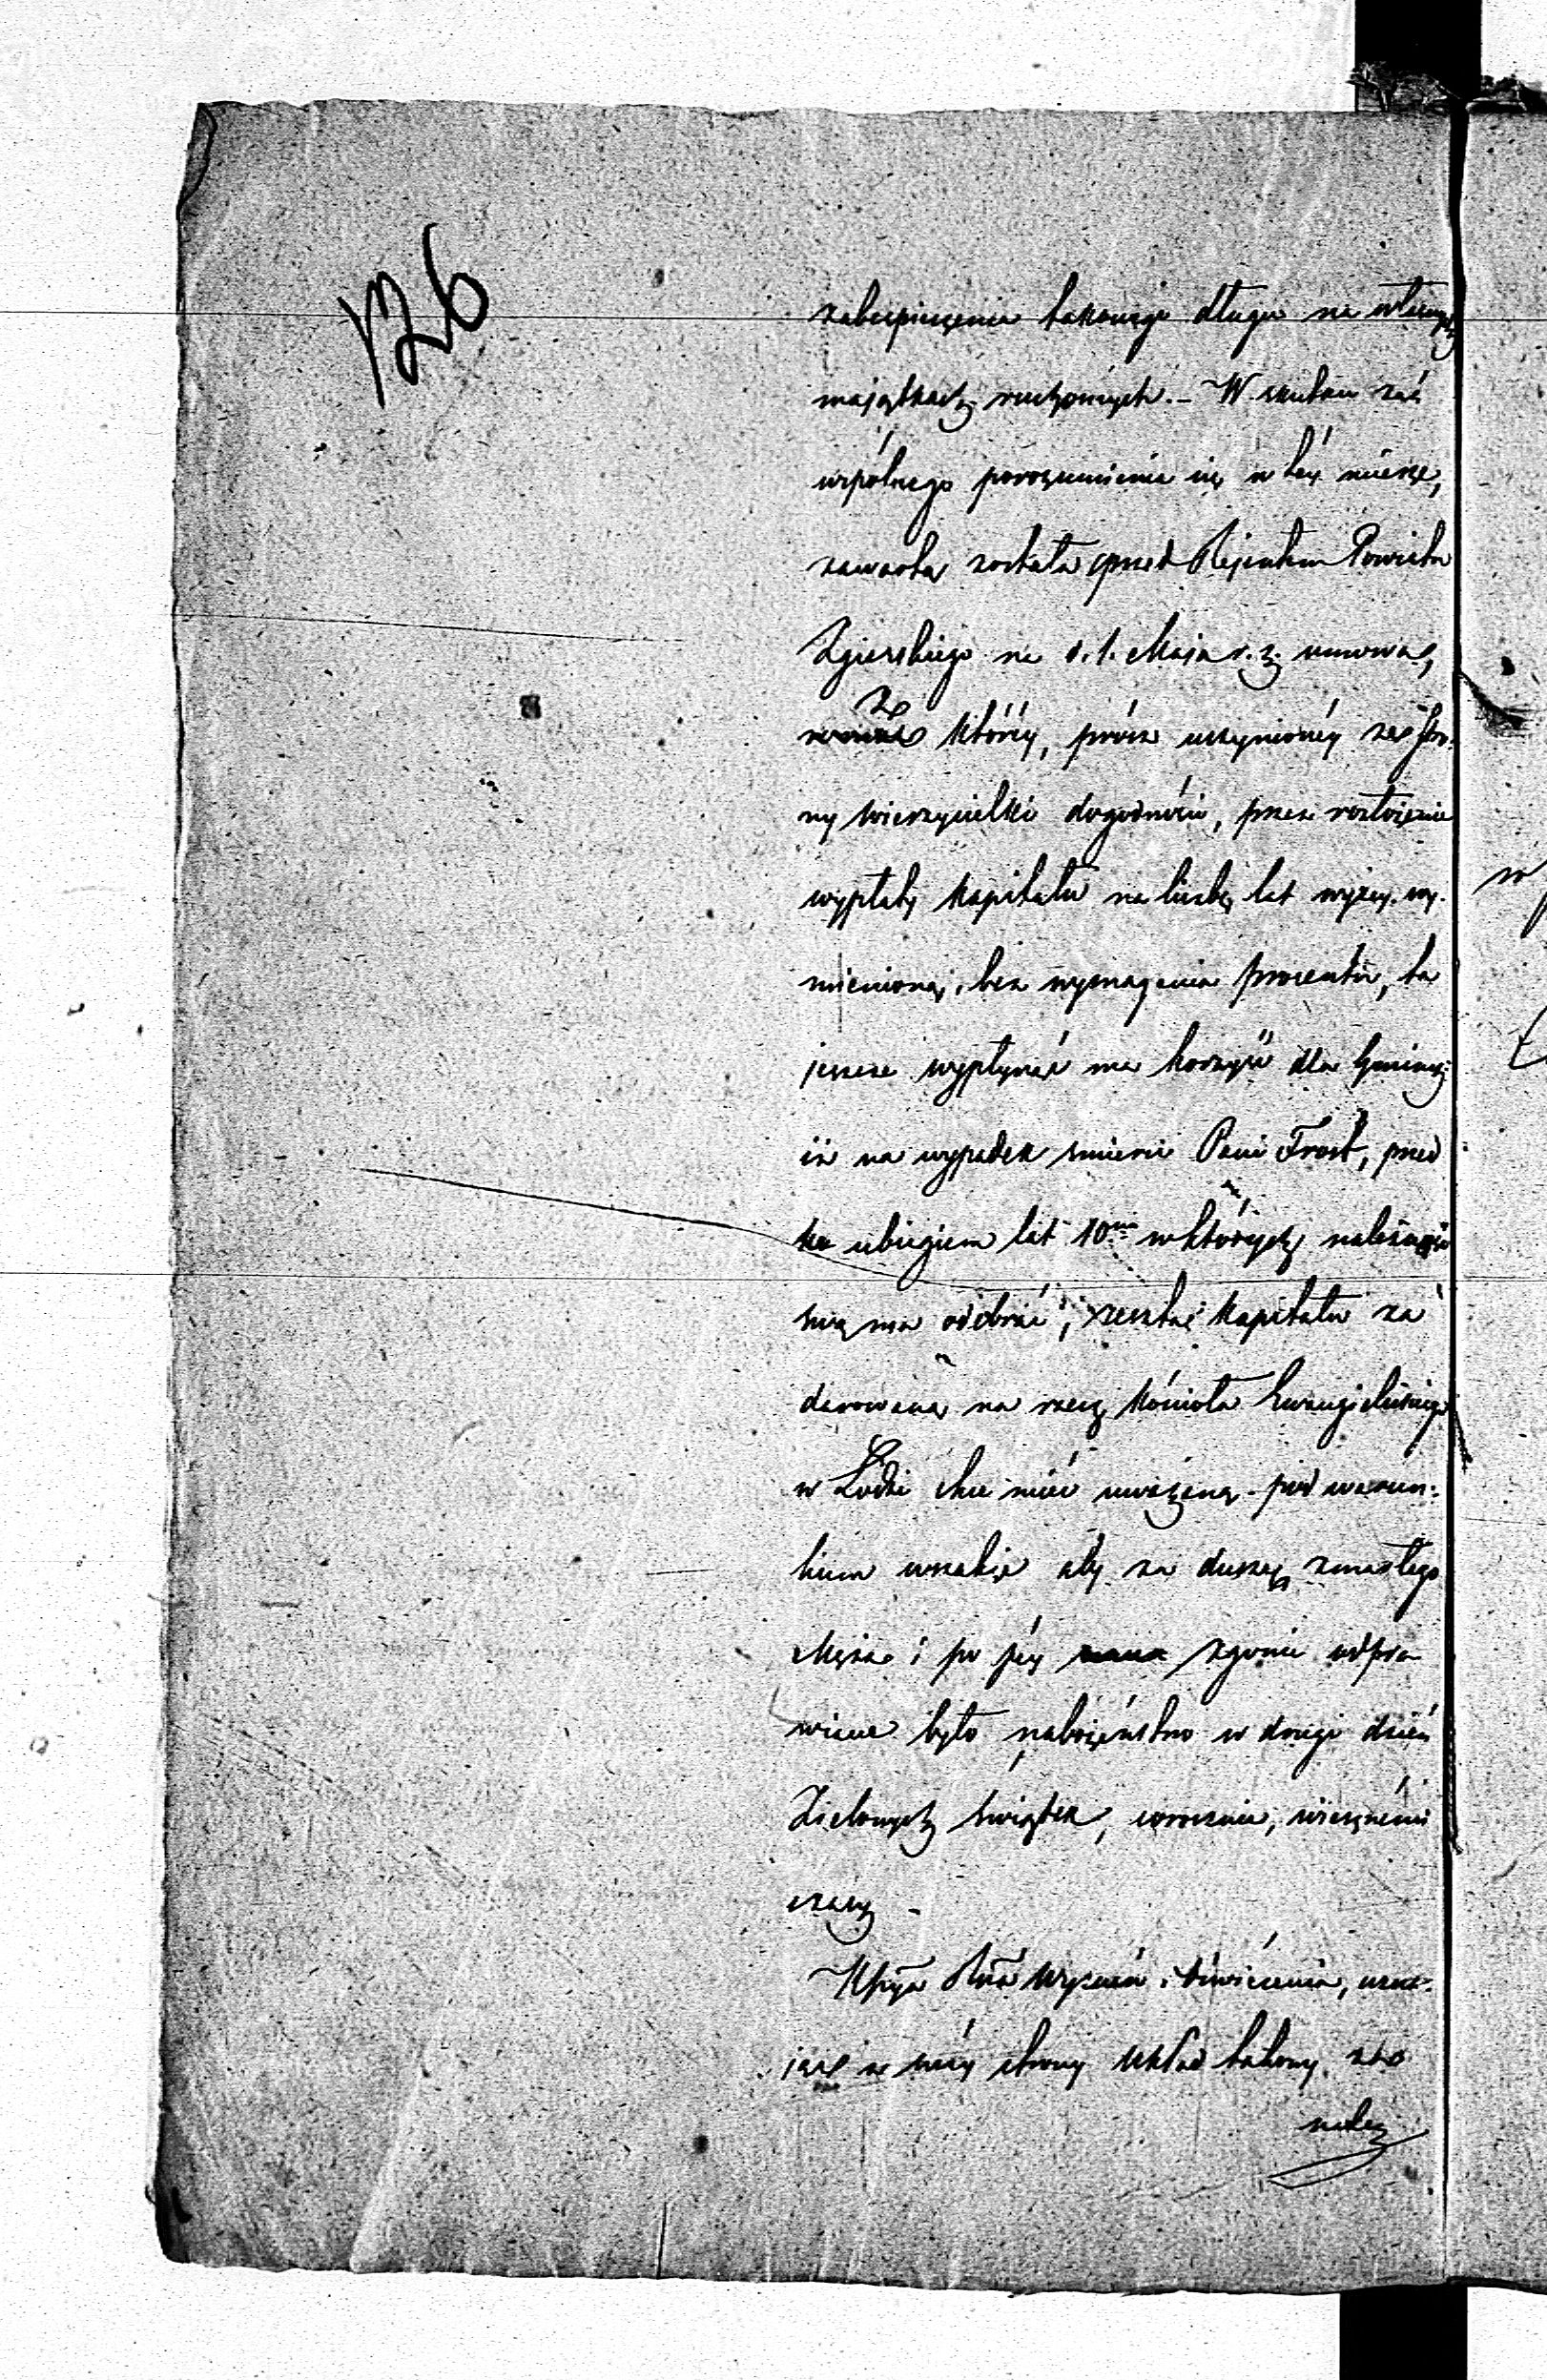 126
zabezpieczenia takowego długu na własnych
majątkach ruchomych. – W skutku zaś
wspólnego porozumienia się w téj mierze,
zawartą została przed Rejentem Powiatu
Zgierskiego na d. 1. Maja r. z. umowa,
Ze
któréj, prócz uczynionéj ze stro-
ny wierzycielki dogodności, przez rozłożenie
wypłaty kapitału na liczbę lat wyżej wy-
mienioną, bez wymagania procentu, ta
jeszcze wypłynąć ma korzyść dla Gminy
iż na wypadek śmierci Pani Frost, przed
ubiegiem lat 10 w których należność
swą ma odebrać, resztę kapitału za
darowaną na rzecz kościoła Ewangielickiego
w Łodzi chce mieć uważaną – pod warun-
kiem wszakże aby za duszę zmarłego
Męża i po jéj zgonie odpra-
wiane było nabożeństwo w drugi dzień
Zielonych świątek, corocznie, wiecznemi
czasy –
Wyznań i Oświecenia, uzna-
jąc z swéj strony układ takowy za
należ